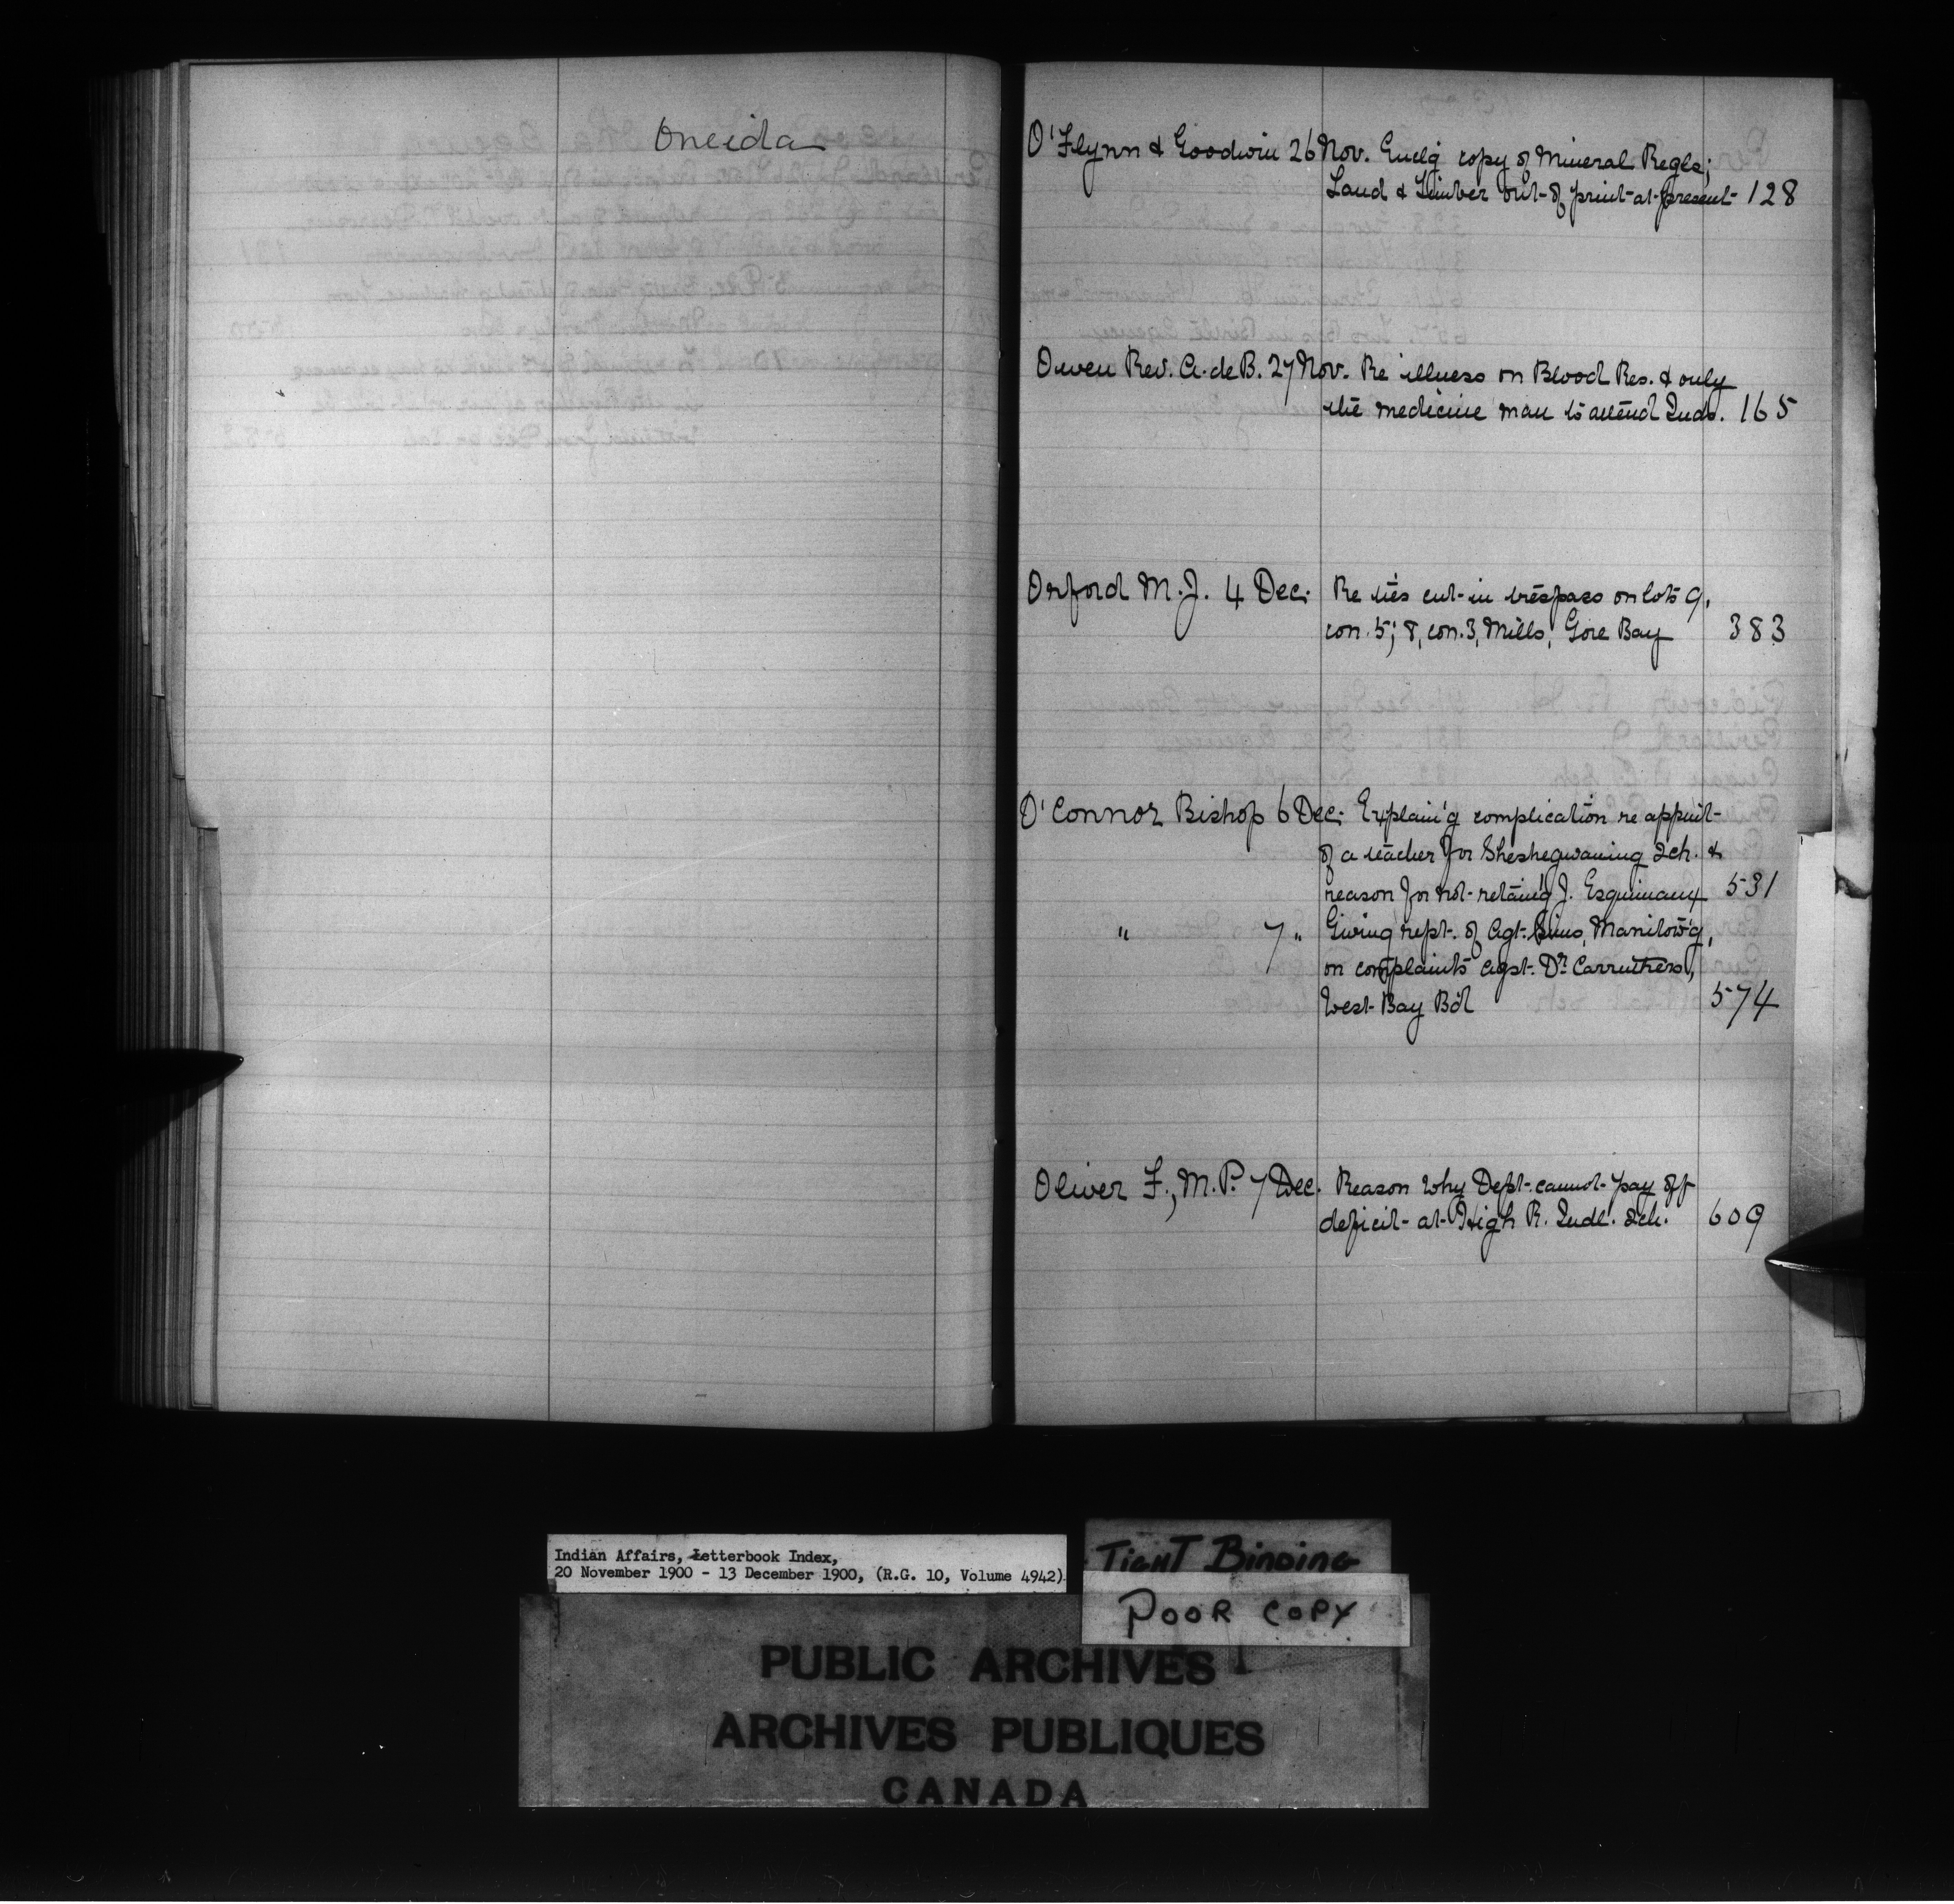 Oneida
O'Flynn & Goodwin 26 Nov. Enclg copy of Mineral Regls;
Land & Timber out of print at present 128
Owen Rev. A. de B. 27 Nov. Re illness on Blood Res. & only
the medicine man to attend Inds. 165
Orford M. J. 4 Dec. Re ties cut in trespass on lots 9,
con. 5; 8, con. 3, Mills, Gore Bay 383
O'Connor Bishop 6 Dec. Explain'g complication re appmt
of a teacher for Sheshegwaning Sch. &
reason for not retain'g J. Esquimaux 531
" 7 " Giving rept. of Agt. Sims, Manitow'g,
on complaints agst. Dr. Carruthers,
West Bay Bd 574
Oliver F., M.P. 7 Dec. Reason why Dept. cannot pay off
deficit at High R. Indl. Sch. 609
Indian Affairs, Letterbook Index,
20 November 1900 - 13 December 1900, (R.G. 10, Volume 4942)
TIGHT BINDING
POOR COPY
PUBLIC ARCHIVES
ARCHIVES PUBLIQUES
CANADA